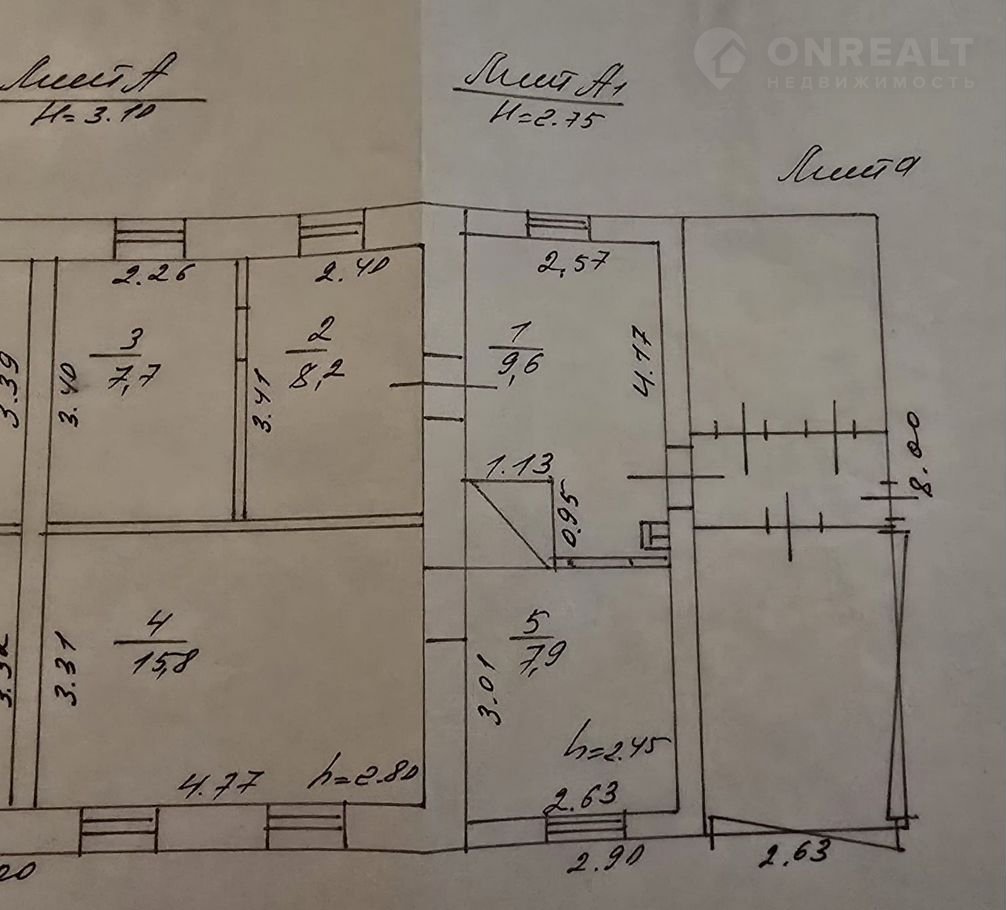 ONREALT
НЕДВИЖИМОСТЬ
Лит А
H=3.10
Лит А1
H=2.75
Лит а
2.26
2.40
2,57
3.39
3.40
3
7,7
2
8,2
3.41
1
9,6
4.17
8.00
1.13
0.95
4
15,8
3.31
5
7,9
3.01
h=2.45
4.77
h=2.80
2.63
2.90
2.63